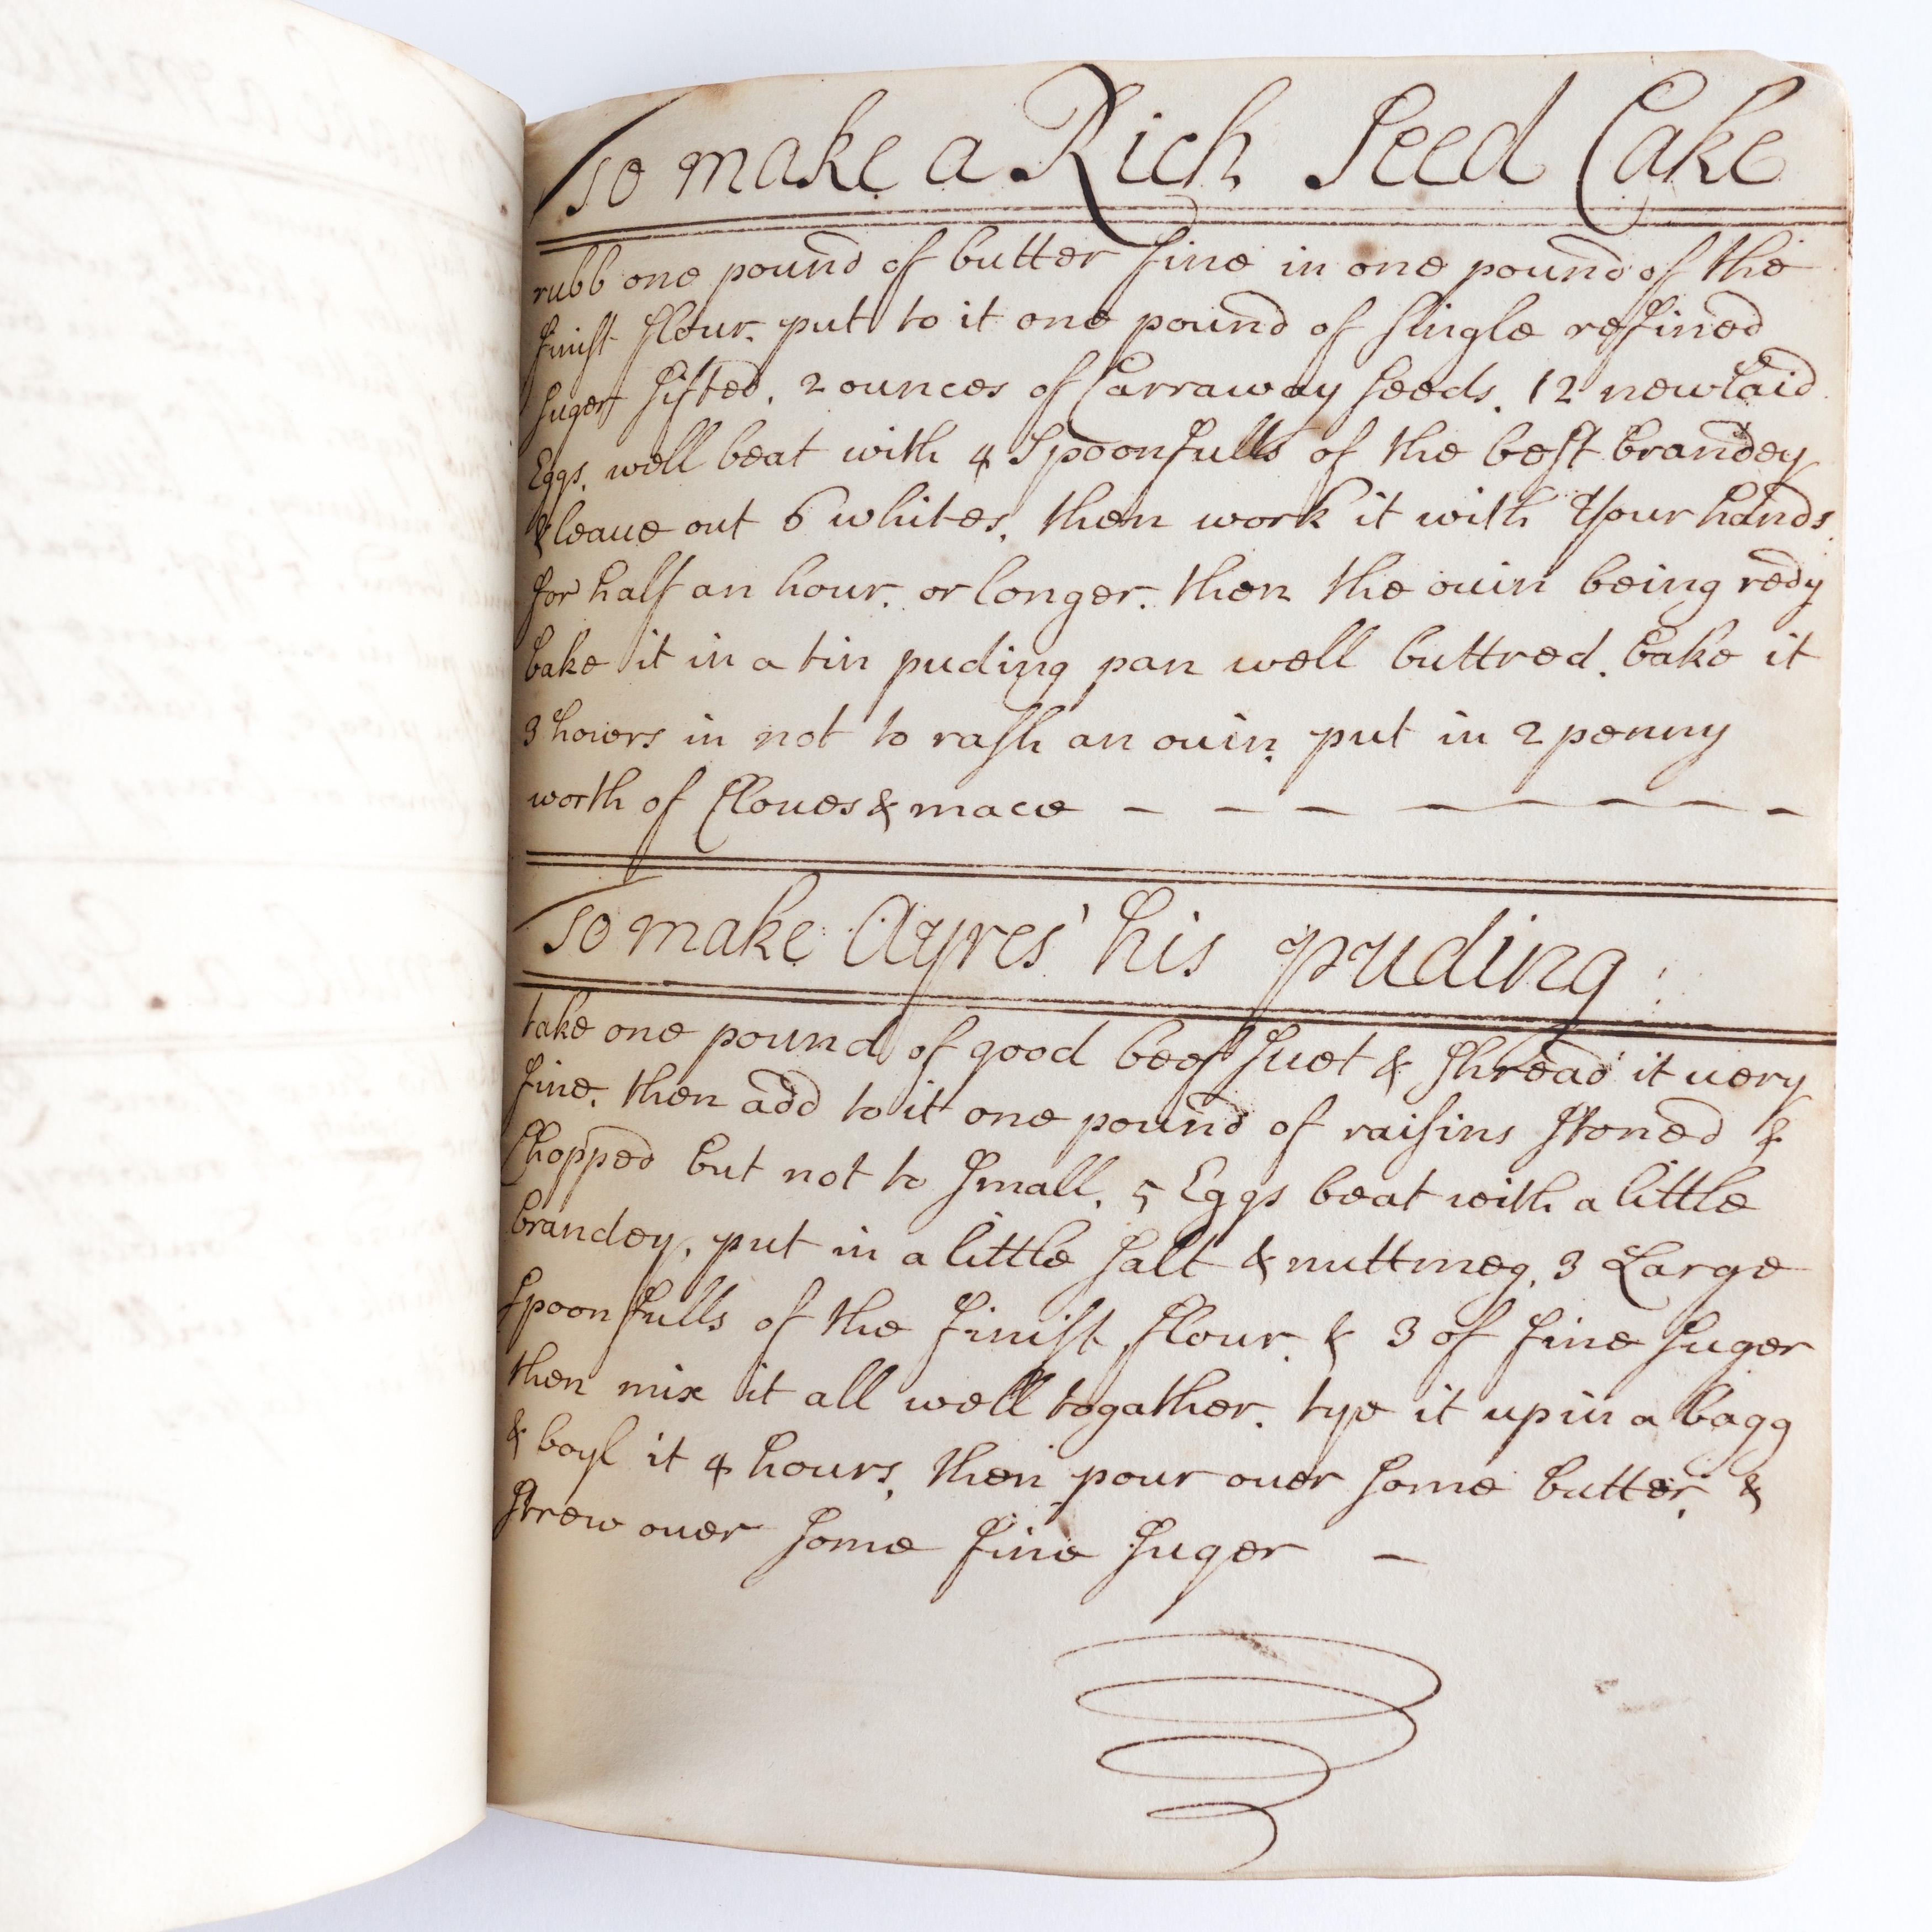 To make a Rich Seed Cake
rubb one pound of butter fine in one pound of the
finist flour. put to it one pound of single refined
suger sifted. 2 ounces of Carraway seeds. 12 newlaid
Eggs. well beat with 4 Spoonfulls of the best brandey
& leave out 6 whites. then work it with Your hands
for half an hour. or longer. then the ovin being redy
bake it in a tin puding pan well buttred. bake it
3 howers in not to rash an ovin. put in 2 penny
worth of Cloves & mace — — — — — — — —
To make Ayres' his puding:
take one pound of good beef suet & shread it very
fine. then add to it one pound of raisins stoned &
Chopped but not to small. 5 Eggs beat with a little
brandey. put in a little salt & nuttmeg. 3 Large
spoonfulls of the finist flour. & 3 of fine suger
then mix it all well togather. tye it up in a bagg
& boyl it 4 hours. then pour over some butter. &
strew over some fine suger —